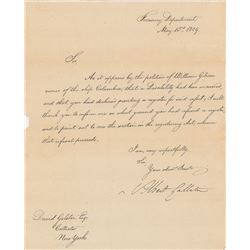 Treasury Department
May 15th 1809.
Sir,
As it appears by the petition of William Gibson
owner of the ship Columbia, that a disability had been incurred,
and that you had declined granting a register for want of it, I will
thank you to inform me on what ground you refused a register,
and to point out to me the section in the registering act, whence
that refusal proceeds.
I am, very respectfully
Sir
Your obedt. Servt.
Albert Gallatin
David Gelston Esq.
Collector
New York